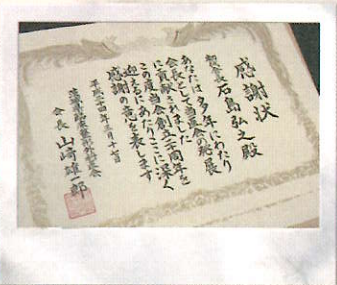 感謝状
石島弘之殿
あなたは多年にわたり
会長として当会の発展
に貢献されました
この度当会創立二周年を
迎えるにあたりここに深く
感謝の意を表します
平成二十四年三月十七日
会長 山崎雄一郎